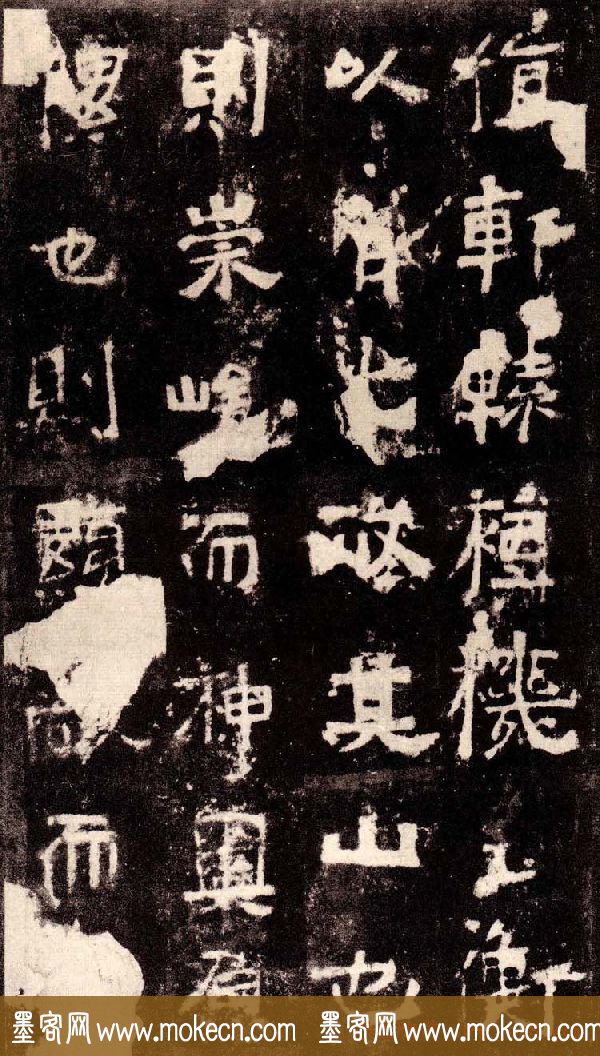 值軒轅機玉衡
以齊七政其山也
則崇峻而神奧
也則顯而
墨客网 www.mokecn.com 墨客网 www.mokecn.com